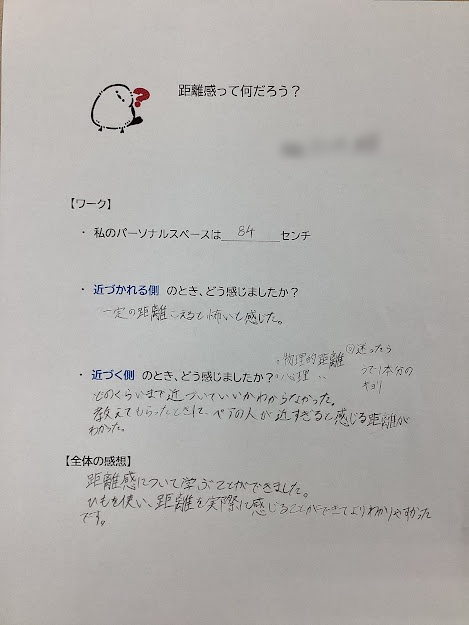 距離感って何だろう？
【ワーク】
・ 私のパーソナルスペースは 84 センチ
・ 近づかれる側 のとき、どう感じましたか？
一定の距離こえると怖いと感じた。
・物理的距離
◎迷ったら
うで1本分の
キョリ
・心理 〃
・ 近づく側 のとき、どう感じましたか？
どのくらいまで近づいていいかわからなかった。
教えてもらったときに、ペアの人が近すぎると感じる距離が
わかった。
【全体の感想】
距離感について学ぶことができました。
ひもを使い、距離を実際に感じることができてよりわかりやすかった
です。